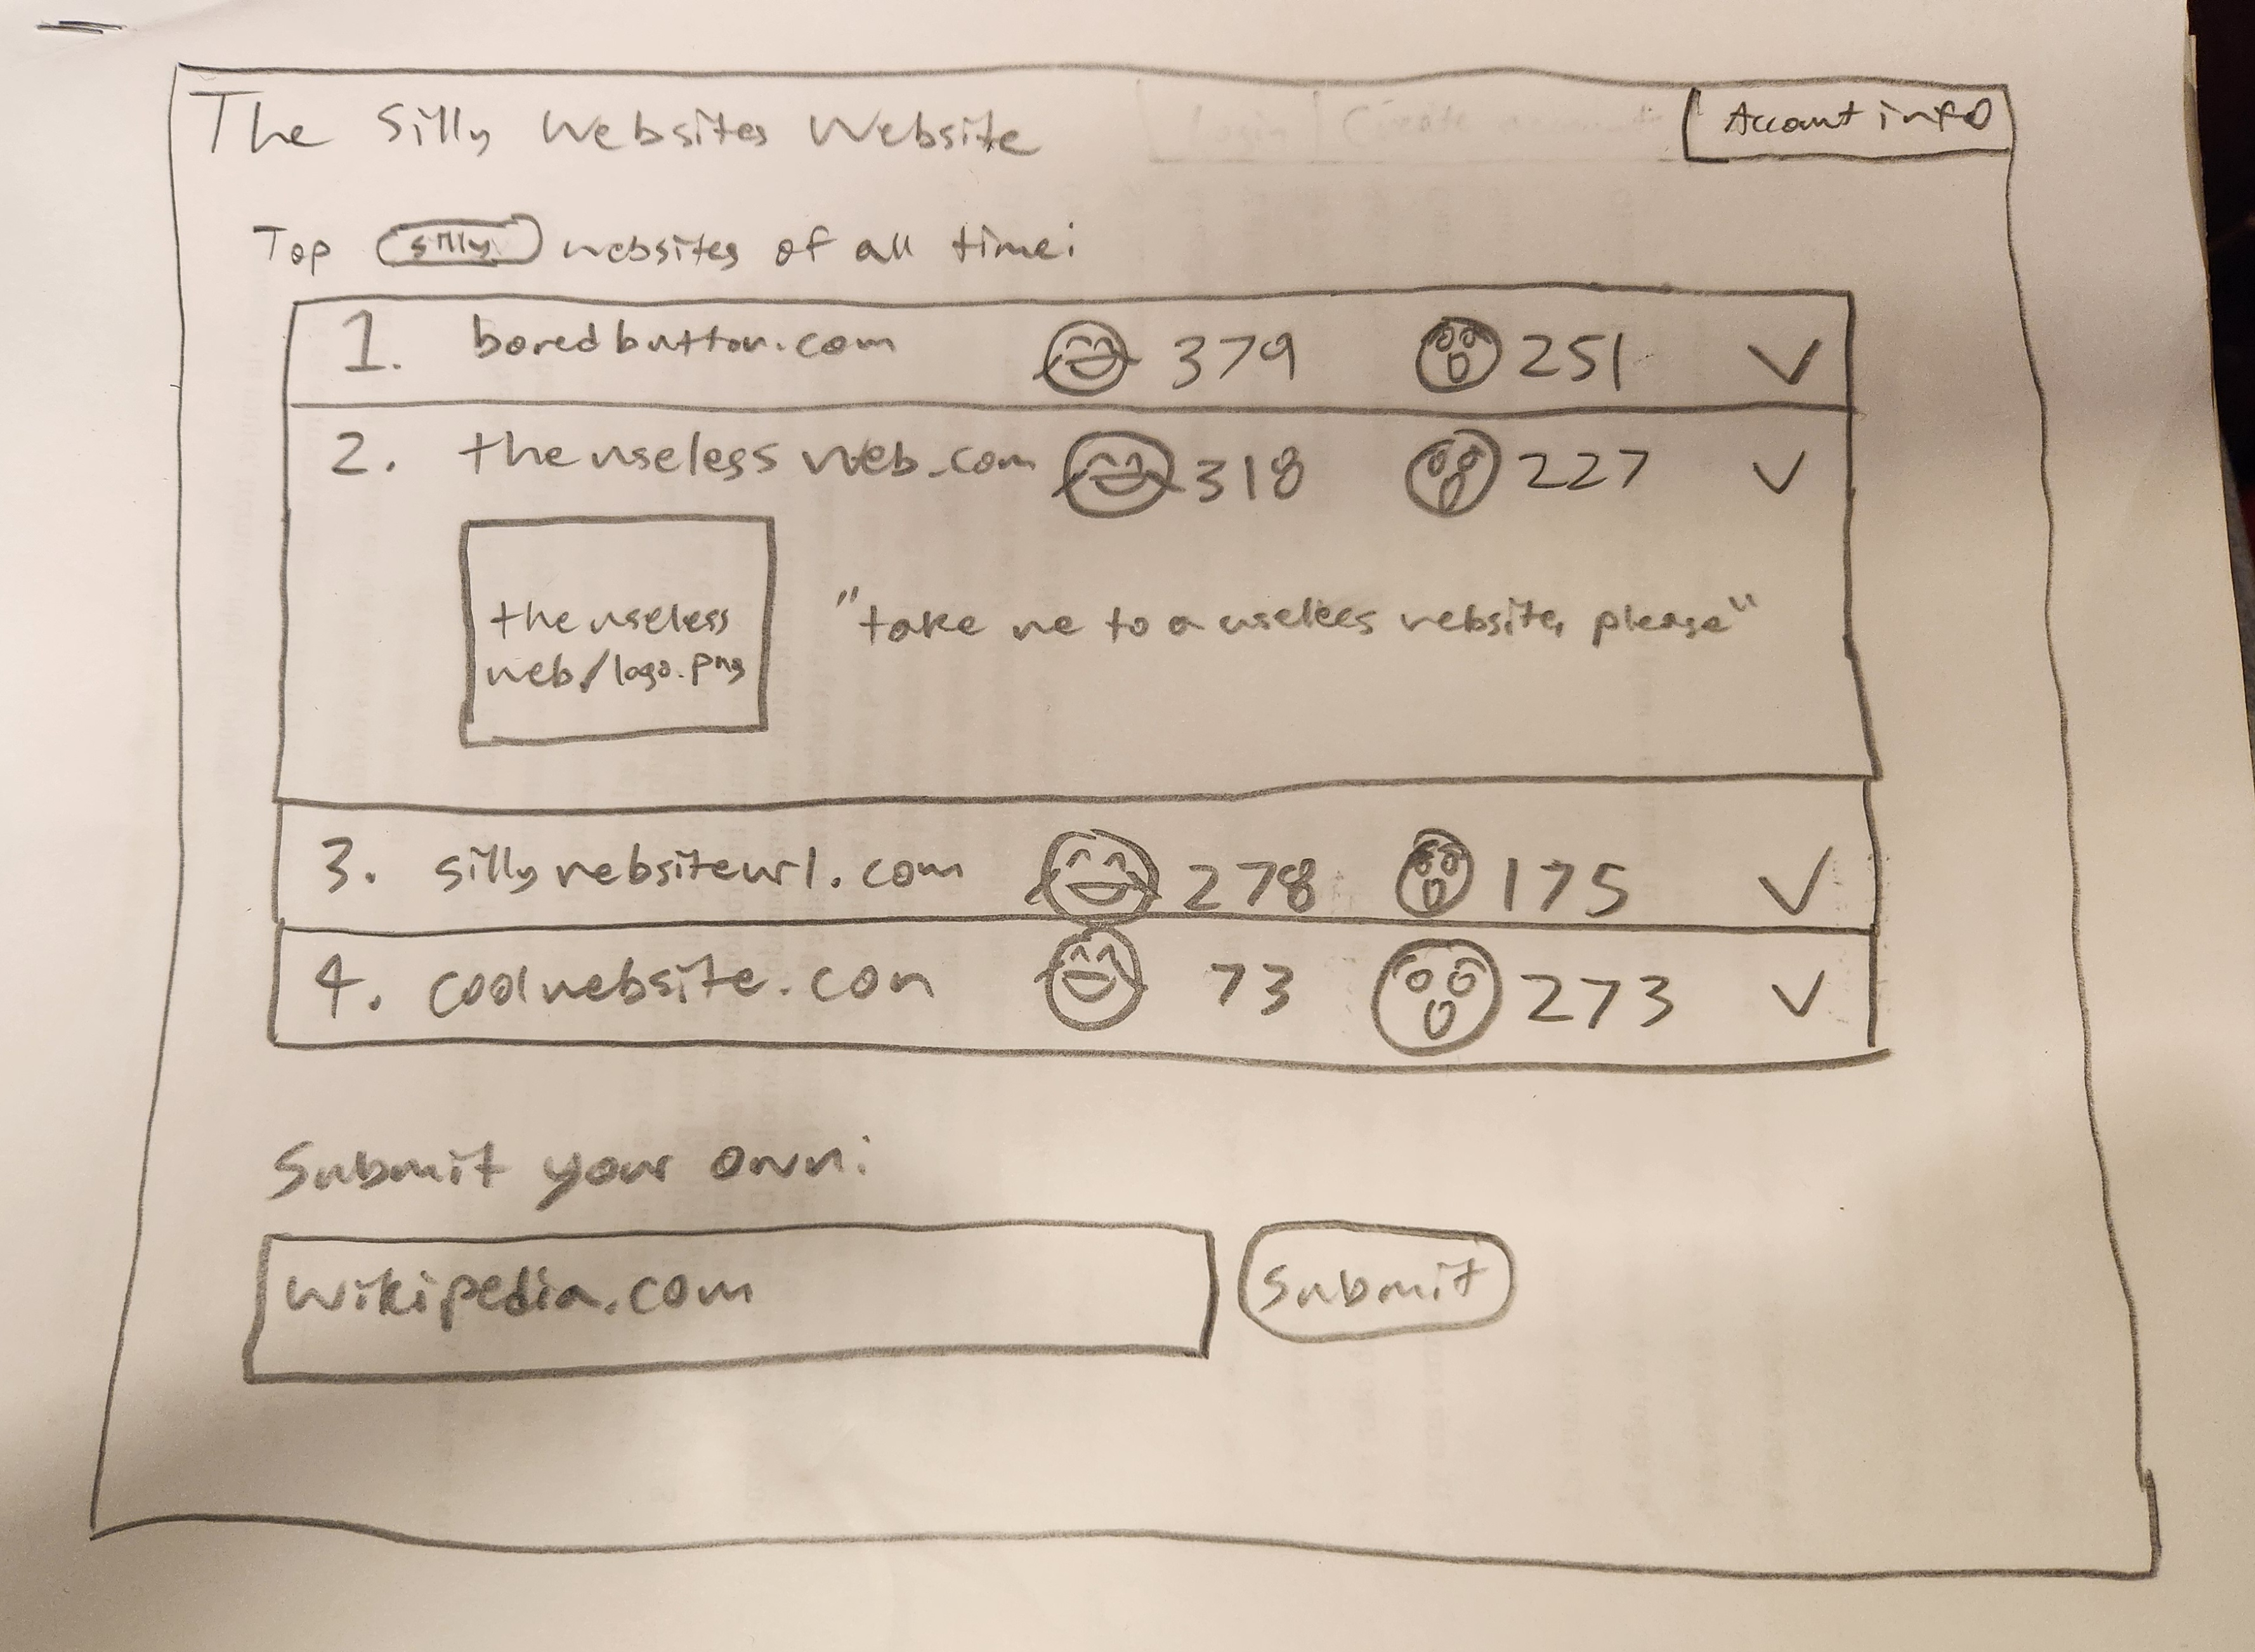 The Silly Websites Website
Account info
Top silly websites of all time:
1. boredbutton.com 379 251
2. theuselessweb.com 318 227
theuseless
web/logo.png
"take me to a useless website, please"
3. sillywebsiteurl.com 278 175
4. coolwebsite.com 73 273
Submit your own:
wikipedia.com
Submit